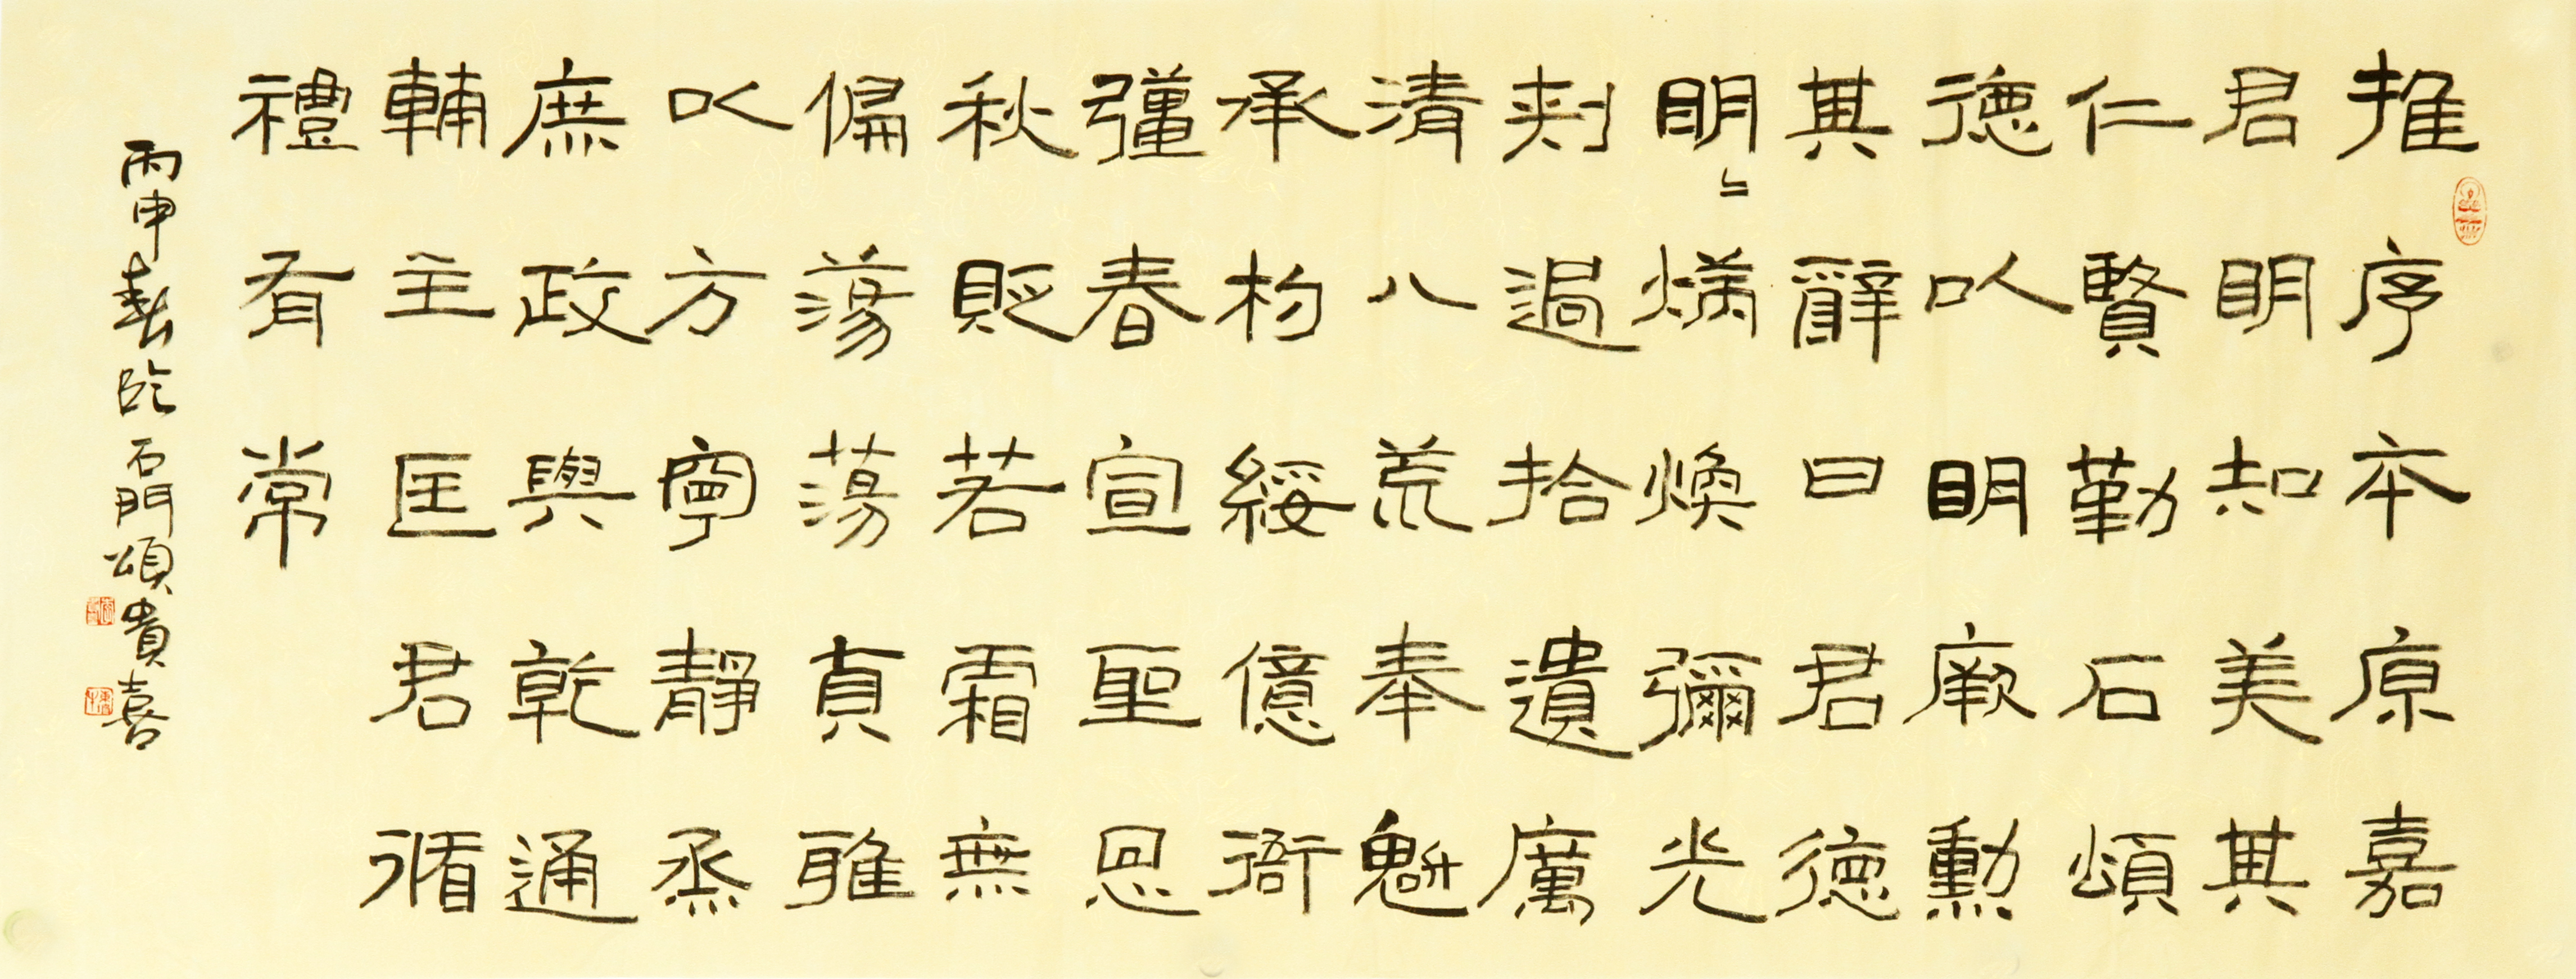 推序本原嘉
君明知美其
仁賢勒石頌
德以明厥勳
其辭曰君德
明〻炳煥彌光
刺過拾遺厲
清八荒奉魁
承杓綏億衙
彊春宣聖恩
秋貶若霜無
偏蕩蕩貞雅
以方寧靜烝
庶政與乾通
輔主匡君循
禮有常
丙申春臨石門頌貴喜